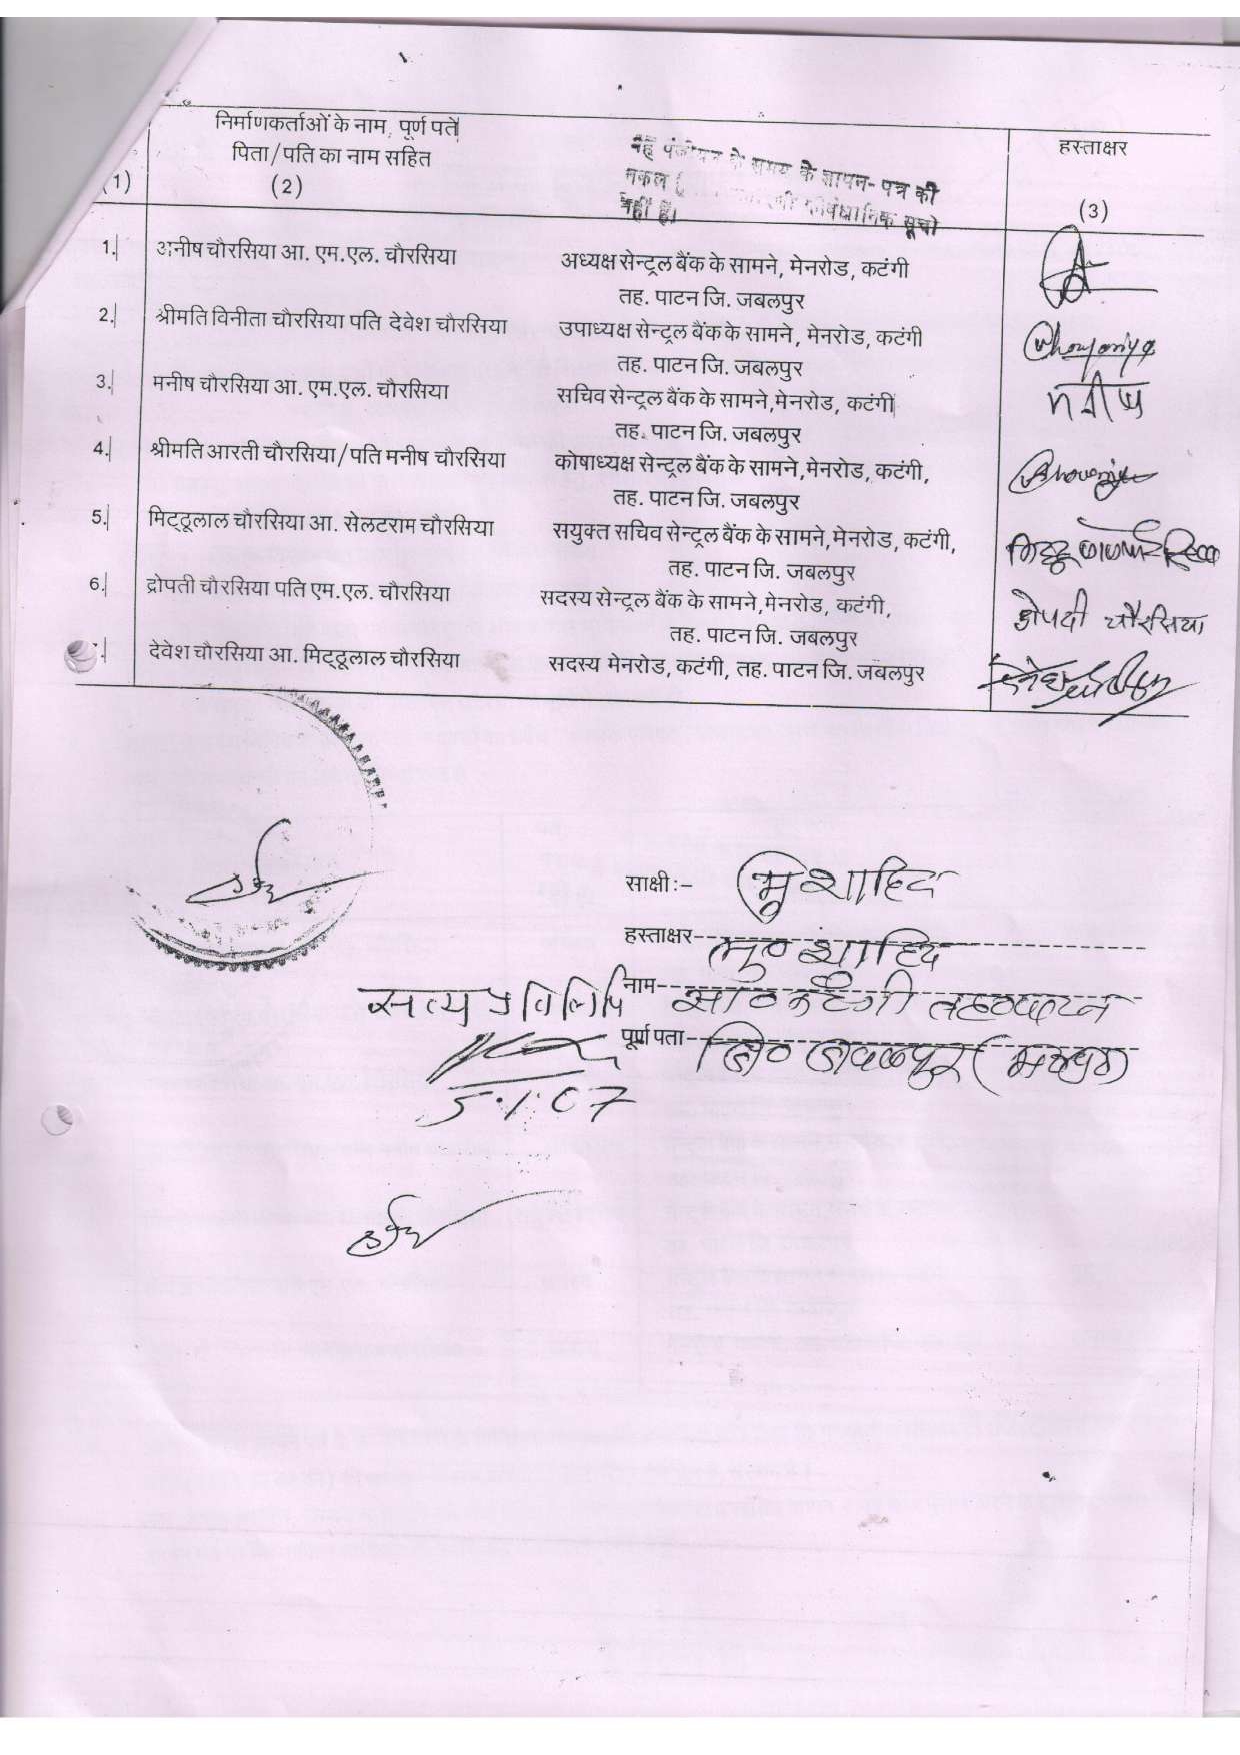 निर्माणकर्ताओं के नाम, पूर्ण पते
पिता/पति का नाम सहित
हस्ताक्षर
(1)
(2)
(3)
के समय के ज्ञापन-पत्र की
नकल
नहीं है।
सूची
1. अनीष चौरसिया आ. एम.एल. चौरसिया अध्यक्ष सेन्ट्रल बैंक के सामने, मेनरोड, कटंगी
तह. पाटन जि. जबलपुर
2. श्रीमति विनीता चौरसिया पति देवेश चौरसिया उपाध्यक्ष सेन्ट्रल बैंक के सामने, मेनरोड, कटंगी
तह. पाटन जि. जबलपुर
3. मनीष चौरसिया आ. एम.एल. चौरसिया सचिव सेन्ट्रल बैंक के सामने, मेनरोड, कटंगी मनीष
तह. पाटन जि. जबलपुर
4. श्रीमति आरती चौरसिया/पति मनीष चौरसिया कोषाध्यक्ष सेन्ट्रल बैंक के सामने, मेनरोड, कटंगी,
तह. पाटन जि. जबलपुर
5. मिट्ठूलाल चौरसिया आ. सेलटराम चौरसिया सयुक्त सचिव सेन्ट्रल बैंक के सामने, मेनरोड, कटंगी,
तह. पाटन जि. जबलपुर
6. द्रोपती चौरसिया पति एम.एल. चौरसिया सदस्य सेन्ट्रल बैंक के सामने, मेनरोड, कटंगी, द्रोपदी चौरसिया
तह. पाटन जि. जबलपुर
देवेश चौरसिया आ. मिट्ठूलाल चौरसिया सदस्य मेनरोड, कटंगी, तह. पाटन जि. जबलपुर
साक्षी :- मु शाहिद
हस्ताक्षर-- मु० शाहिद
सत्य प्रतिलिपि
नाम-- सा० कटंगी तह० पाटन
पूर्ण पता-- जि० जबलपुर (म०प्र०)
5.1.07